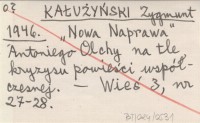 KAŁUŻYŃSKI Zygmunt
1946. „Nowa Naprawa"
Antoniego Olchy na tle
kryzysu powieści współ-
czesnej. — Wieś 3, nr
27-28.